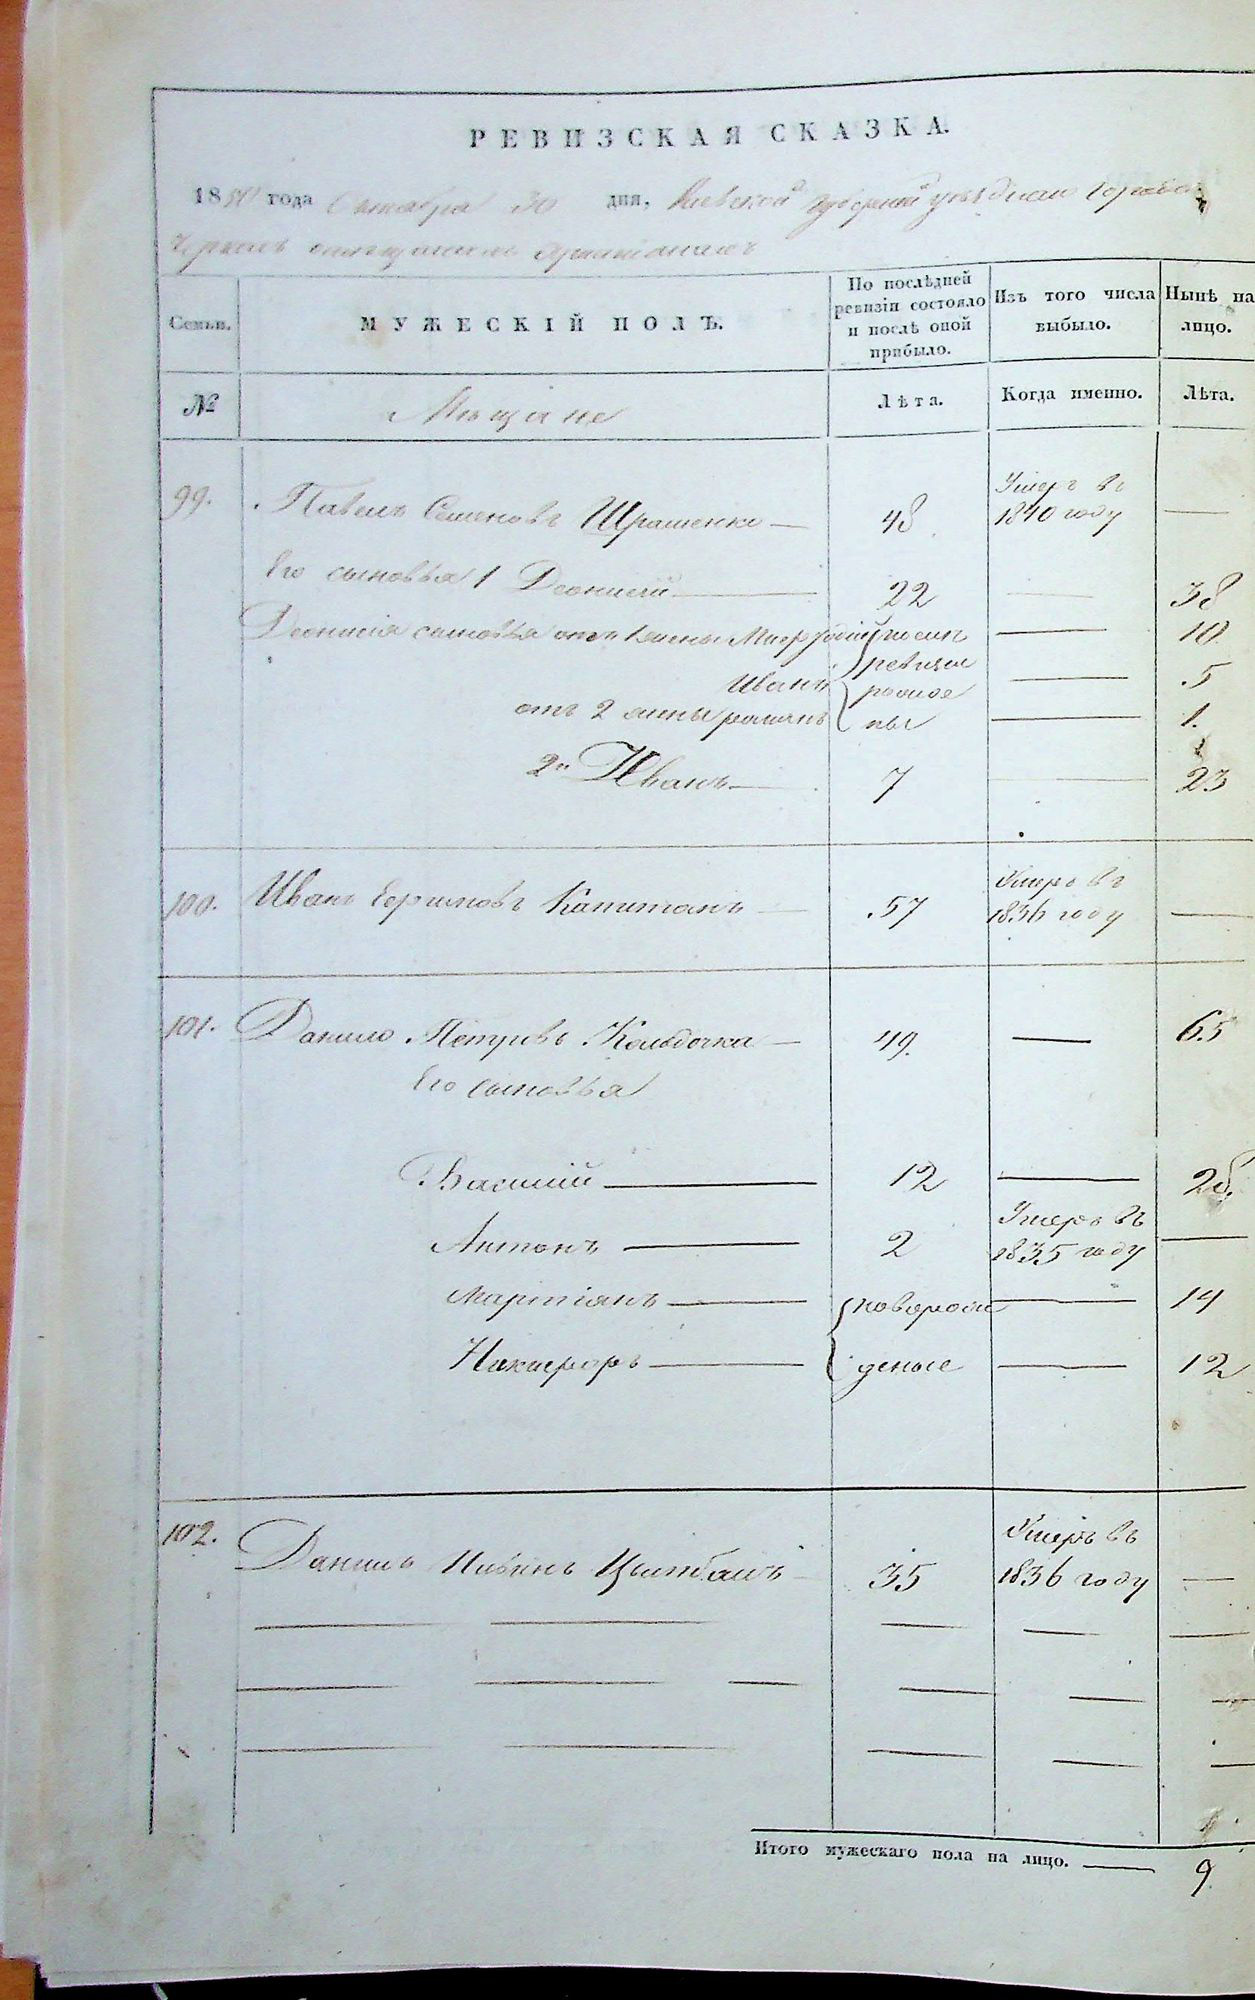 РЕВИЗСКАЯ СКАЗКА.
1850 года Октября 30 дня, Киевской Губернии уѣзднаго города
Черкасъ о христіанахъ
Семьи. МУЖЕСКІЙ ПОЛЪ. По послѣдней ревизіи состояло и послѣ оной прибыло. Изъ того числа выбыло. Нынѣ на лицо.
№ Мѣщане Лѣта. Когда именно. Лѣта.
99. Павелъ Семеновъ — 48 Умеръ въ 1840 году —
Его сыновья 1 Деонисій — 22 — 38
Деонисія сыновья отъ 1 жены — 10
Иванъ — 5
отъ 2 жены романъ — 1.
послѣ
ревизіи
рожде
ны
2й Иванъ — 7 — 23
100. Иванъ Ефимовъ Капитанъ — 57 Умеръ въ 1836 году —
101. Данило Петровъ — 49. — 65
Его сыновья
Василій — 12 — 28.
Антонъ — 2 Умеръ въ 1835 году —
Мартіанъ — новорож — 14
Никифоръ — деные — 12
102. Данило Цымбалъ — 35 Умеръ въ 1836 году —
Итого мужескаго пола на лицо. — 9